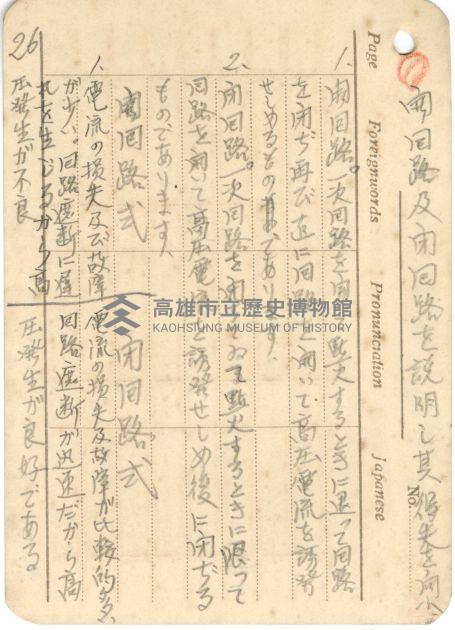 開回路及閉回路を説明し其得失を問ふ
1. 開回路。一次回路を開き點火するときに迠って回路
を閉ぢ再び直に回路を開いて高圧電流を誘発
せしめるものであります、
2. 閉回路。一次回路を閉ぢゐて點火するときに限って
回路を開いて高圧電流を誘発せしめ後に閉ぢる
ものであります、
開回路式 閉回路式
1. 電流の損失及び故障
が少い。回路遮断に
れを生じるから高
圧発生が不良
電流の損失及故障が比較的多
回路遮断が迅速だから高
圧発生が良好である
26
Page Foreignwords Pronunciation Japanese
No.
高雄市立歷史博物館
KAOHSIUNG MUSEUM OF HISTORY